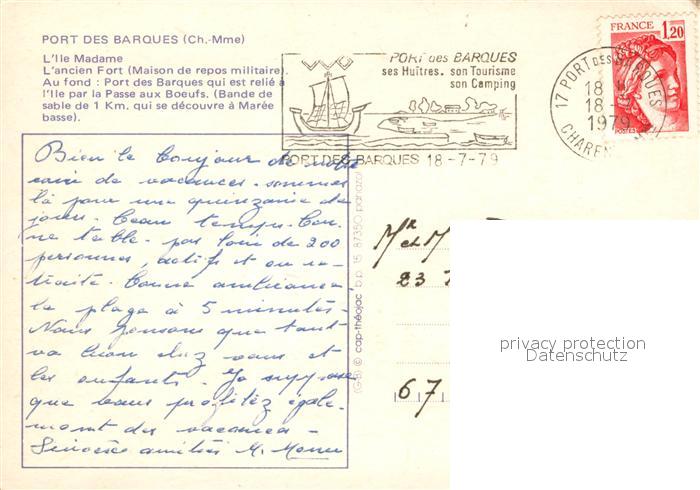 PORT DES BARQUES (Ch.-Mme)
L'Ile Madame
L'ancien Fort (Maison de repos militaire).
Au fond : Port des Barques qui est relié à
l'Ile par la Passe aux Boeufs. (Bande de
sable de 1 Km. qui se découvre à Marée
basse).
PORT des BARQUES
ses Huîtres. son Tourisme
son Camping
PORT DES BARQUES 18-7-79
17 PORT DES BARQUES
18 H
18-7
1979
CHAREN
FRANCE
1,20
POSTES
Bien le bonjour de notre
coin de vacances. sommes
là pour une quinzaine de
jours. Beau temps. Bon-
ne table. pas loin de 200
personnes, actifs et en re-
traite. Bonne ambiance.
la plage à 5 minutes.
Nous pensons que tout
va bien chez vous et
les enfants. Je suppose
que vous profitez égale-
ment des vacances.
Sincères amitiés M.
(G·B) © cap-théojac b.p. 15 87350 panazol
Mr
et M
23
67
privacy protection
Datenschutz